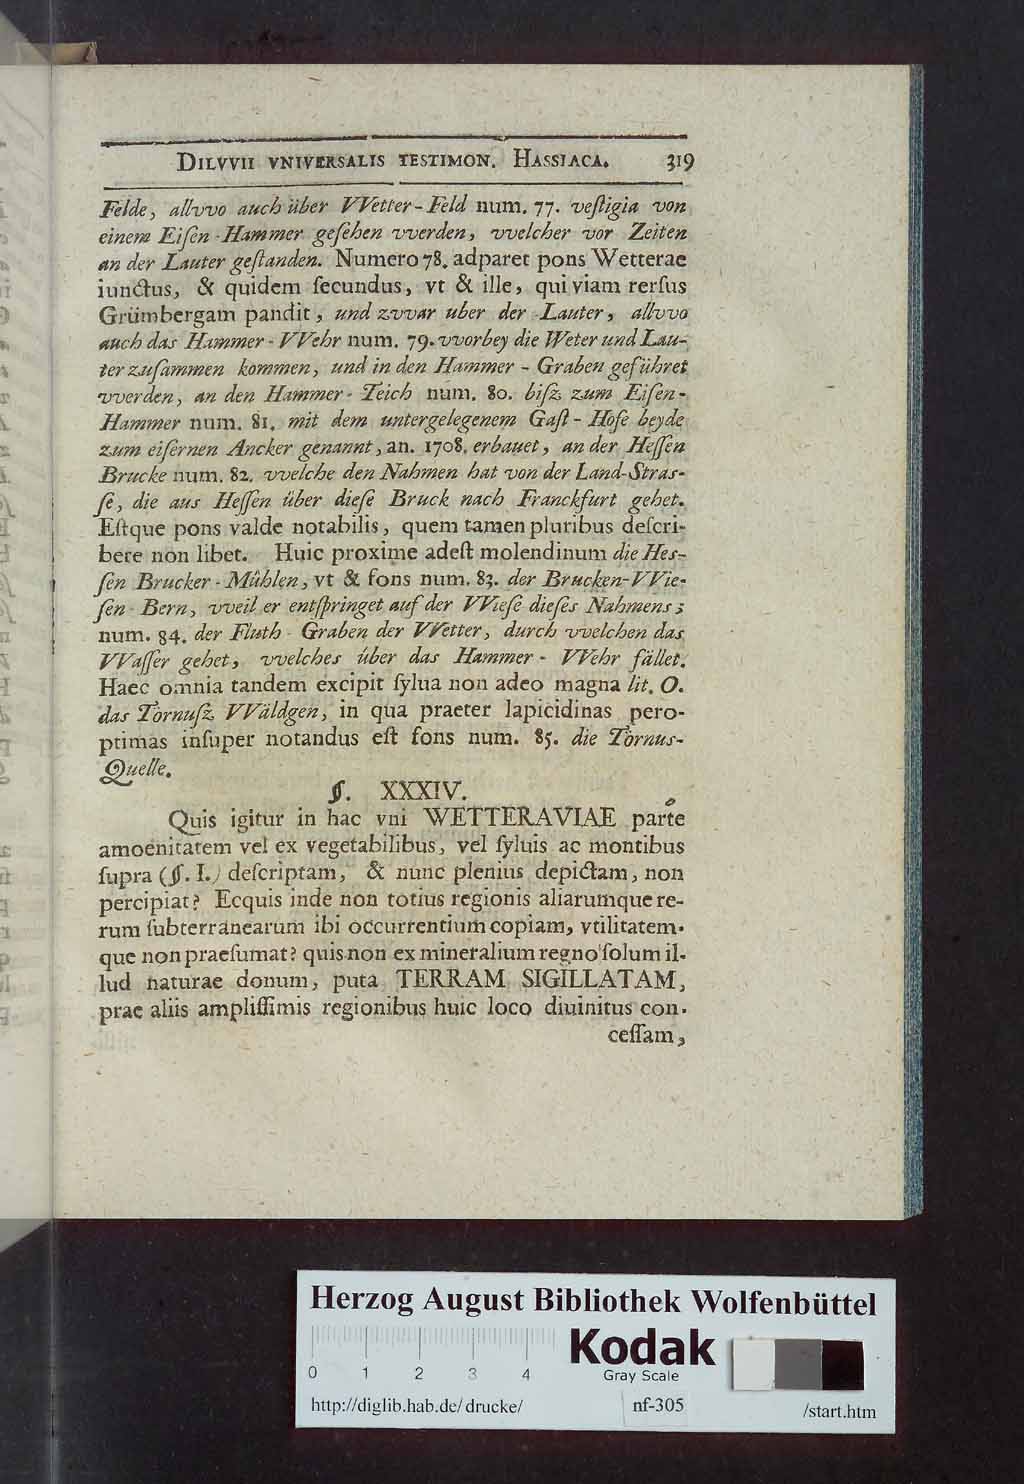 DILVVII VNIVERSALIS TESTIMON. HASSIACA. 319
Felde, allvvo auch über VVetter-Feld num. 77. veſtigia von
einem Eiſen-Hammer geſehen vverden, vvelcher vor Zeiten
an der Lauter geſtanden. Numero 78. adparet pons Wetterae
iunctus, & quidem ſecundus, vt & ille, qui viam rerſus
Grümbergam pandit, und zvvar uber der Lauter, allvvo
auch das Hammer-VVehr num. 79. vvorbey die Weter und Lau-
ter zuſammen kommen, und in den Hammer-Graben geführet
vverden, an den Hammer-Teich num. 80. biſz zum Eiſen-
Hammer num. 81. mit dem untergelegenem Gaſt-Hofe beyde
zum eiſernen Ancker genannt, an. 1708. erbauet, an der Heſſen
Brucke num. 82. vvelche den Nahmen hat von der Land-Stras-
ſe, die aus Heſſen über dieſe Bruck nach Franckfurt gehet.
Eſtque pons valde notabilis, quem tamen pluribus deſcri-
bere non libet. Huic proxime adeſt molendinum die Heſ-
ſen Brucker-Mühlen, vt & fons num. 83. der Brucken-VVie-
ſen-Bern, vveil er entſpringet auf der VVieſe dieſes Nahmens;
num. 84. der Fluth-Graben der VVetter, durch vvelchen das
VVaſſer gehet, vvelches über das Hammer-VVehr fället.
Haec omnia tandem excipit ſylua non adeo magna lit. O.
das Tornuſz VVäldgen, in qua praeter lapicidinas pero-
ptimas inſuper notandus eſt fons num. 85. die Tornus-
Quelle.
§. XXXIV.
Quis igitur in hac vni WETTERAVIAE parte
amoenitatem vel ex vegetabilibus, vel ſyluis ac montibus
ſupra (§. I.) deſcriptam, & nunc plenius depictam, non
percipiat? Ecquis inde non totius regionis aliarumque re-
rum ſubterranearum ibi occurrentium copiam, vtilitatem-
que non praeſumat? quis non ex mineralium regno ſolum il-
lud naturae donum, puta TERRAM SIGILLATAM,
prae aliis ampliſſimis regionibus huic loco diuinitus con-
ceſſam,
Herzog August Bibliothek Wolfenbüttel
Kodak
Gray Scale
0 1 2 3 4
http://diglib.hab.de/drucke/ nf-305 /start.htm